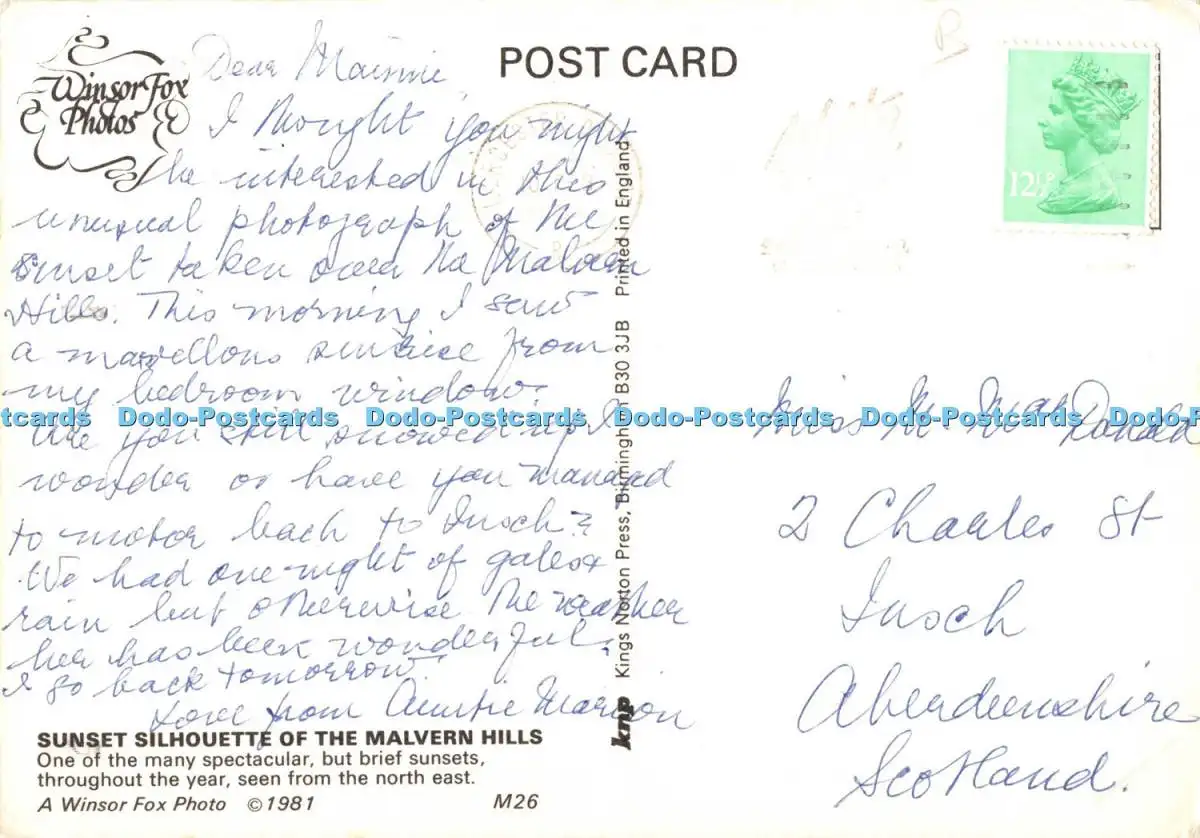 Winsor Fox
Photos
POST CARD
12½P
Dear Mainnie,
I thought you might
be interested in this
unusual photograph of the
sunset taken over the Malvern
Hills. This morning I saw
a marvellous sunrise from
my bedroom window.
Are you still snowed up I
wonder or have you managed
to motor back to Insch?
We had one night of gales &
rain but otherwise the weather
here has been wonderful.
I go back tomorrow.
Love from Auntie Marion
Miss M. W. MacDonald
2 Charles St
Insch
Aberdeenshire
Scotland.
knp Kings Norton Press, Birmingham B30 3JB Printed in England
SUNSET SILHOUETTE OF THE MALVERN HILLS
One of the many spectacular, but brief sunsets,
throughout the year, seen from the north east.
A Winsor Fox Photo ©1981 M26
Dodo-Postcards Dodo-Postcards Dodo-Postcards Dodo-Postcards Dodo-Postcards